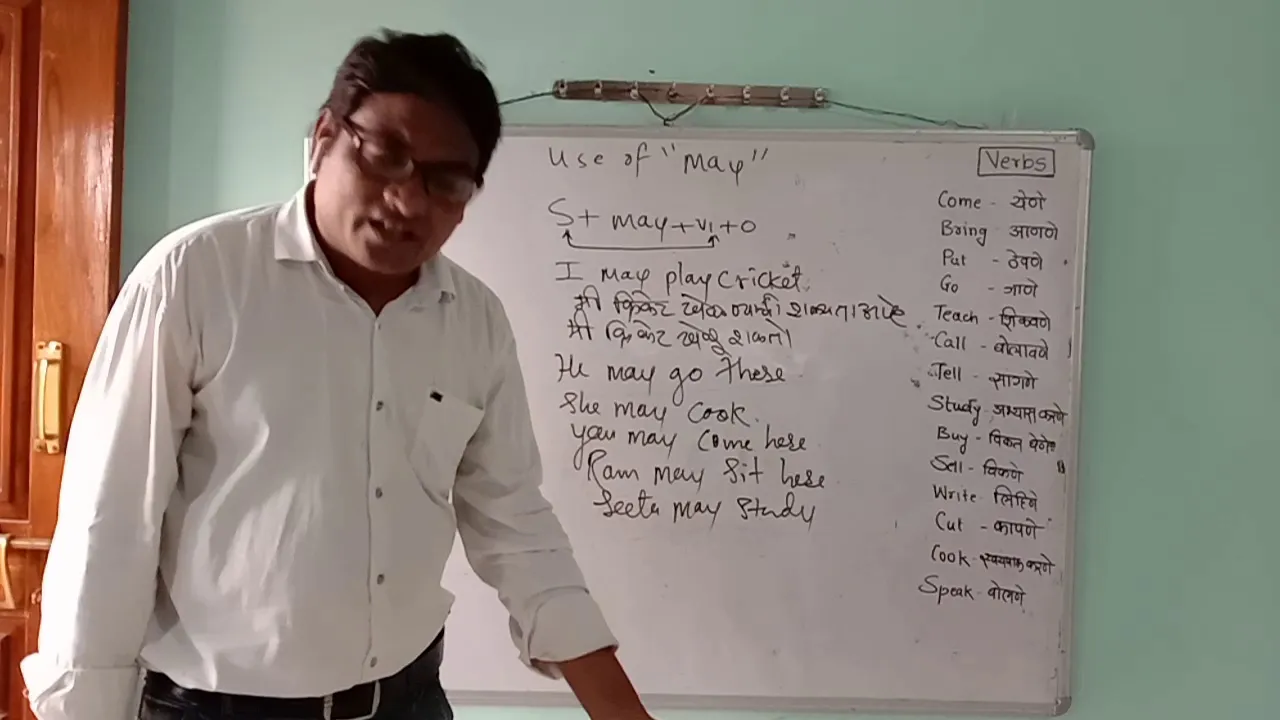 Use of "May"
S + may + V1 + O
I may play Cricket.
मी क्रिकेट खेळण्याची शक्यता आहे
मी क्रिकेट खेळू शकतो।
He may go there
She may Cook.
you may Come here
Ram may Sit here
Seeta may Study
Verbs
Come - येणे
Bring - आणणे
Put - ठेवणे
Go - जाणे
Teach - शिकवणे
Call - बोलावणे
Tell - सागणे
Study - अभ्यास करणे
Buy - विकत घेणे
Sell - विकणे
Write - लिहिने
Cut - कापणे
Cook - स्वयपाक करणे
Speak - बोलणे